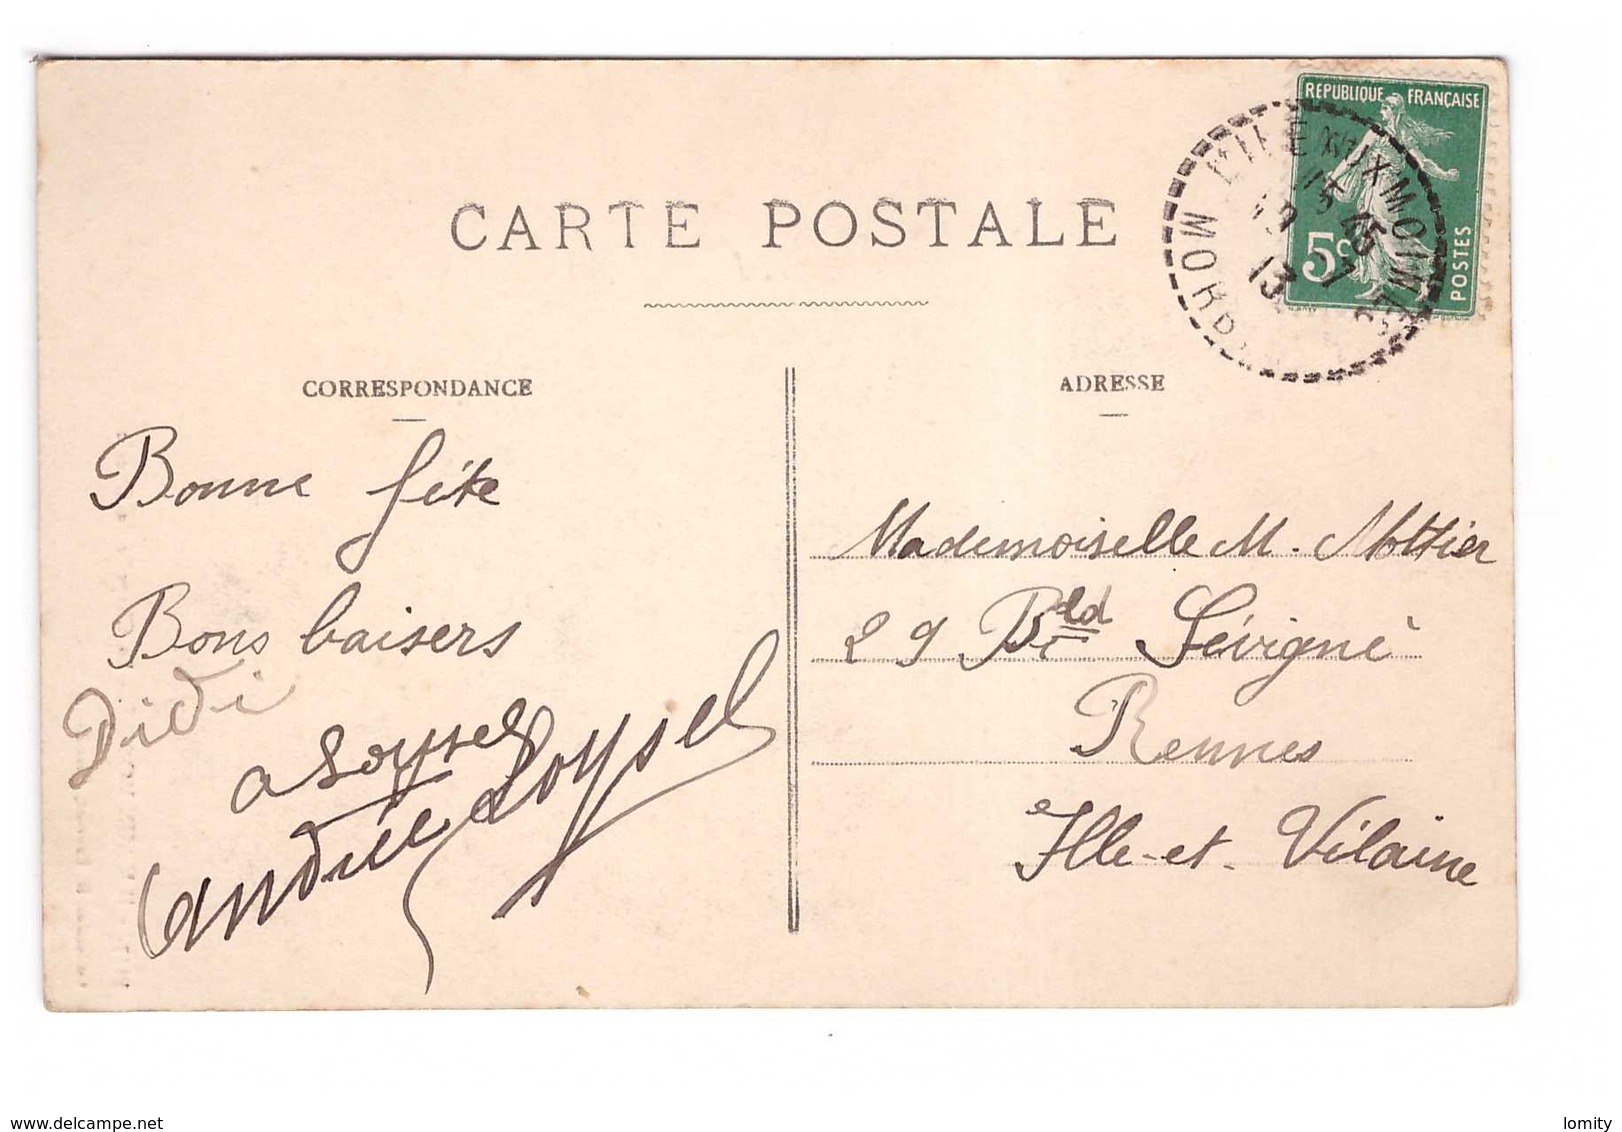 CARTE POSTALE
RÉPUBLIQUE FRANÇAISE
5c
POSTES
15 45
13
CORRESPONDANCE
ADRESSE
Bonne fête
Bons baisers
Didi
a Loysel
Andrée Loysel
Mademoiselle M. Mottier
29 Bld Sévigné
Rennes
Ille-et-Vilaine
www.delcampe.net
lomity